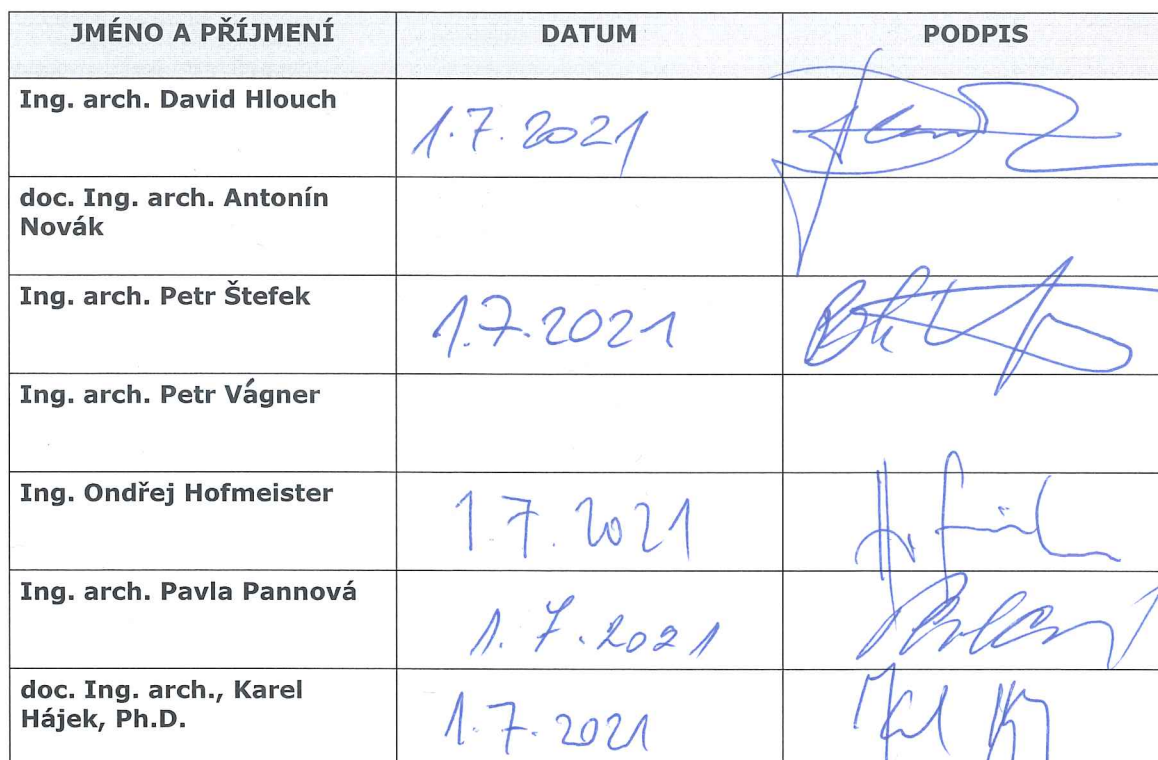 JMÉNO A PŘÍJMENÍ DATUM PODPIS
Ing. arch. David Hlouch 1.7.2021
doc. Ing. arch. Antonín
Novák
Ing. arch. Petr Štefek 1.7.2021
Ing. arch. Petr Vágner
Ing. Ondřej Hofmeister 1.7.2021
Ing. arch. Pavla Pannová 1.7.2021
doc. Ing. arch., Karel
Hájek, Ph.D. 1.7.2021